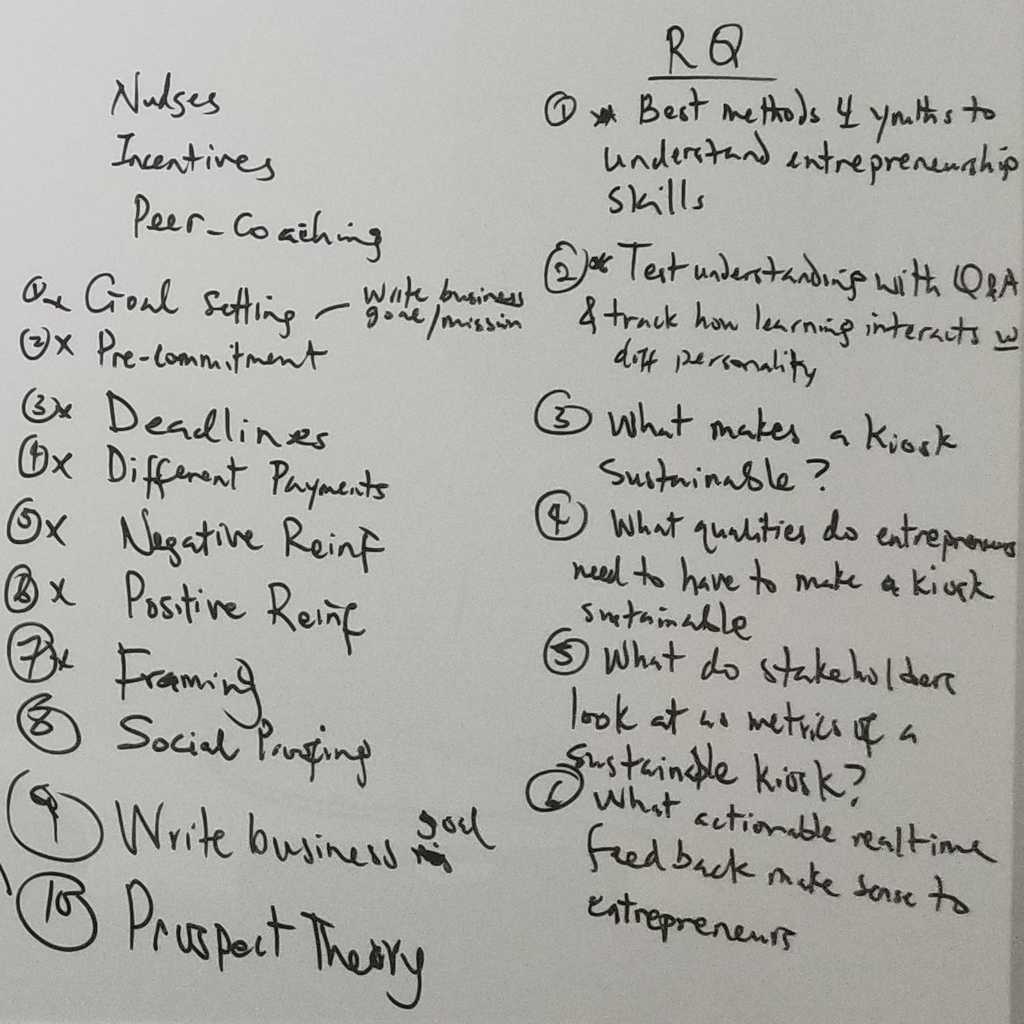 Nudges
Incentives
Peer-Coaching
① x Goal Setting — Write business
goal/mission
② x Pre-commitment
③ x Deadlines
④ x Different Payments
⑤ x Negative Reinf
⑥ x Positive Reinf
⑦ x Framing
⑧ Social Proofing
⑨ Write business goal
⑩ Prospect Theory
RQ
① * Best methods 4 youths to
understand entrepreneurship
skills
② * Test understanding with Q&A
& track how learning interacts w
diff personality
③ What makes a kiosk
Sustainable?
④ What qualities do entrepreneurs
need to have to make a kiosk
sustainable
⑤ What do stakeholders
look at as metrics of a
sustainable kiosk?
⑥ What actionable realtime
feedback make sense to
entrepreneurs